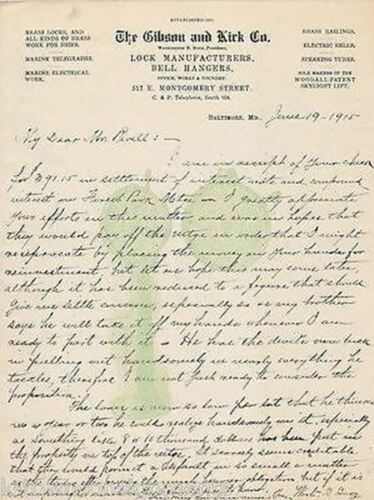 ESTABLISHED
The Gibson and Kirk Co.
BRASS LOCKS, AND
ALL KINDS OF BRASS
WORK FOR SHIPS.
MARINE TELEGRAPHS.
MARINE ELECTRICAL
WORK.
LOCK MANUFACTURERS,
BELL HANGERS,
OFFICE, WORKS & FOUNDRY:
517 E. MONTGOMERY STREET.
C. & P. Telephone, South
BRASS RAILINGS,
ELECTRIC BELLS,
SPEAKING TUBES.
SOLE MAKERS OF THE
PATENT
SKYLIGHT LIFT.
BALTIMORE, MD., June 19 - 1915
My Dear Mr. :-
I am in receipt of your check
for $91.15 in settlement of interest note and compound
interest on Forest Park - I greatly appreciate
your efforts in this matter and was in hopes that
they would pay off the in order that I might
reciprocate by placing the money in your hands for
reinvestment, but let us hope this may come later,
although it has been reduced to a figure that should
give me little concern, especially so as my brother
says he will take it off my hands whenever I am
ready to part with it - He has the devils own luck
in pulling out handsomely in nearly everything he
tackles, therefore I am not just ready to consider the
proposition.
The loan is now so low that he thinks
in a year or two he could realize handsomely on it, especially
as something like 8 or 10 thousand dollars has been put in
the property on top of the . It scarcely seems creditable
that they would permit a default in so small a matter
obligation but if it